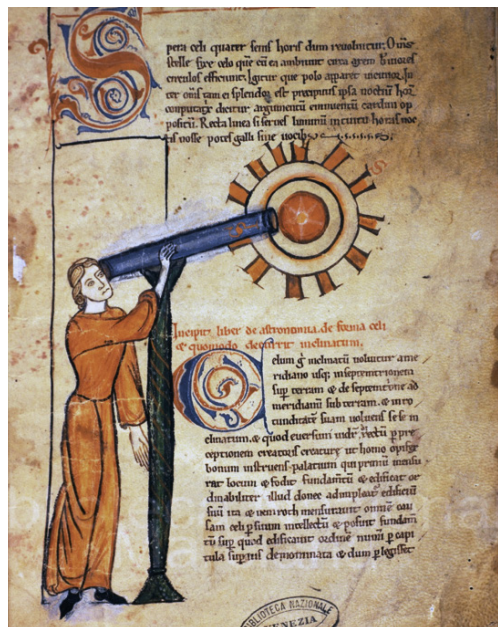 Spera celi quater senis horis dum reuoluitur. Om̄s
stelle fixe celo que cū ea ambiunt circa axem breuiores
circulos efficiunt. Igitur que polo apparet uicinior. in
ter om̄s tam & splendor est precipuus ipsa noctiū hor
computatrix dicitur argumentū eminentiū cardini op
positū. Recta linea si serues luminū intuitu horas noc
tis nosse potes galli sine uocibus
Incipit liber de astronomia. de forma celi
& quomodo decurrit inclinatum.
Celum inclinatū uoluitur a me
ridiano usq; in septemtrionem
sup terram & de septemtrione ad
meridianū sub terram. & in ro
tunditatē suam uoluens se se in
clinatum. & quod
ceptionem creatoris creature ut homo opifex
bonum instruens palatium qui primū mensu
rat locum & fodit fundam̄tū & edificat or
dinabiliter illud donec adimpleat edificiū
suū ita & nemroth mensurauit omnē cau
sam celi p situm intellectū & posuit fundam
tū sup quod edificauit ordinē p capi
tula & dum p legisset
BIBLIOTECA NAZIONALE
VENEZIA